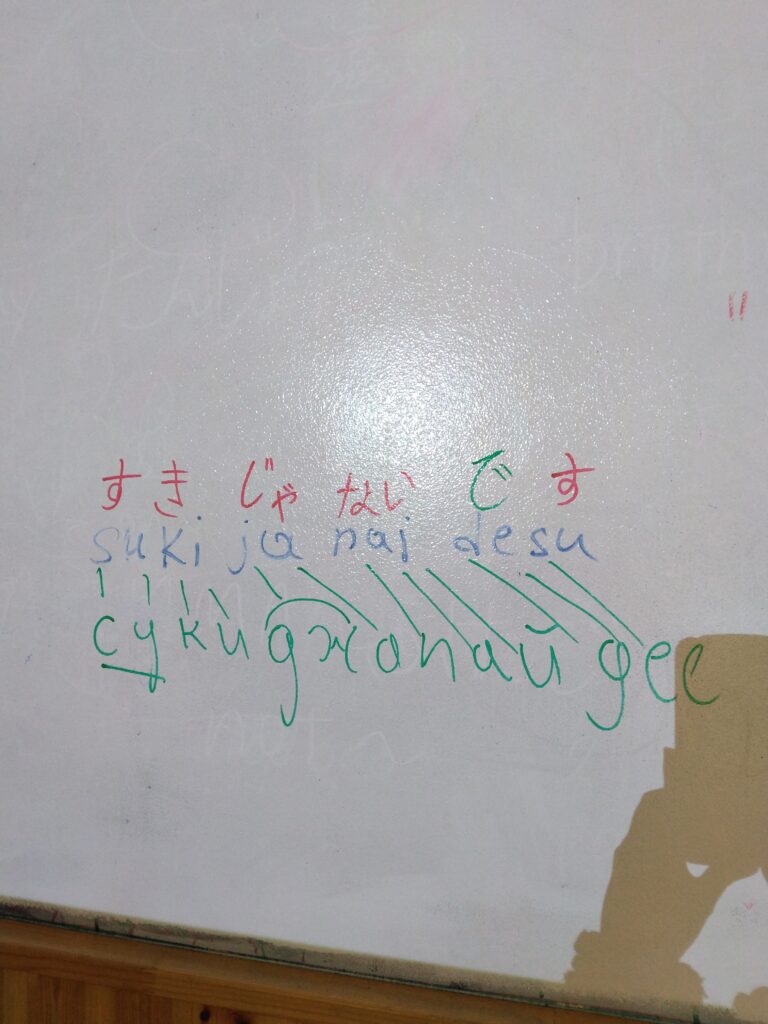 すき じゃ ない です
suki ja nai desu
суки джанай дес